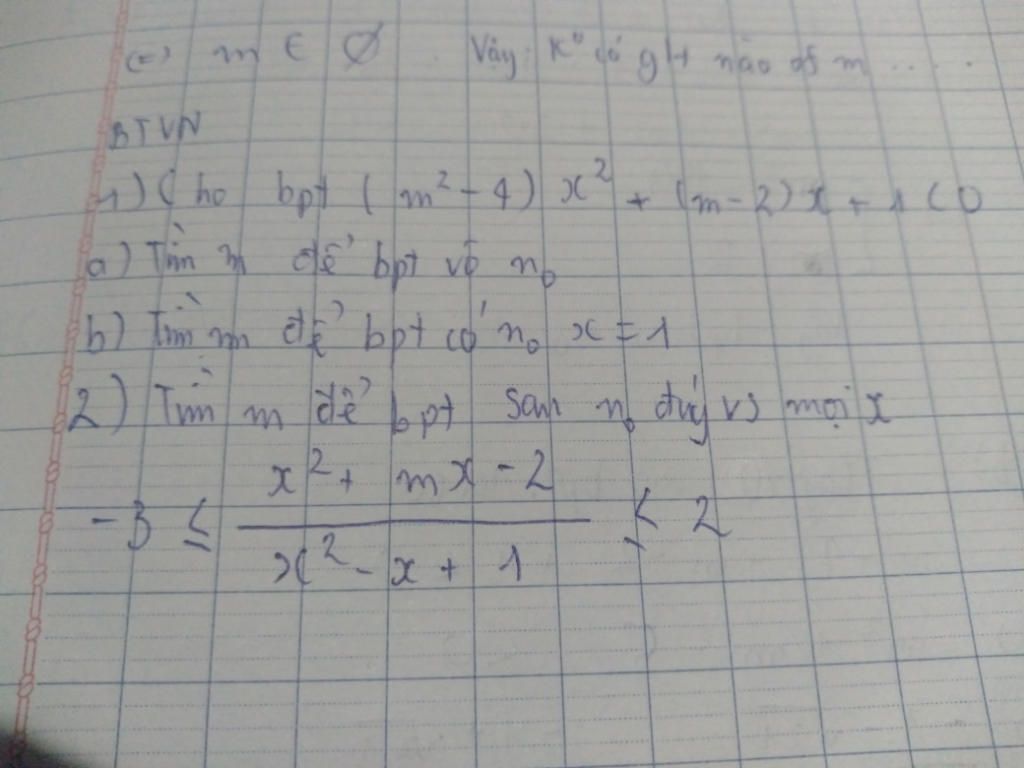 (=) m ∈ Ø. Vậy: K° có gtr nào of m ....
BTVN
1) Cho bpt (m² - 4) x² + (m-2)x + 1 < 0
a) Tìm m để bpt vô n₀
b) Tìm m để bpt có n₀ x = 1
2) Tìm m để bpt sau n₀ đúg vs mọi x
-3 ≤ \frac{x² + mx - 2}{x² - x + 1} ≤ 2